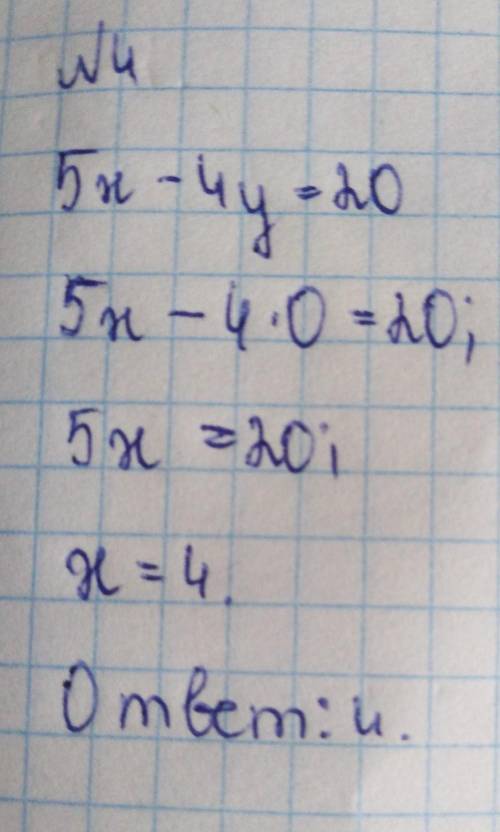 №4
5x - 4y = 20
5x - 4·0 = 20;
5x = 20;
x = 4.
Ответ: 4.